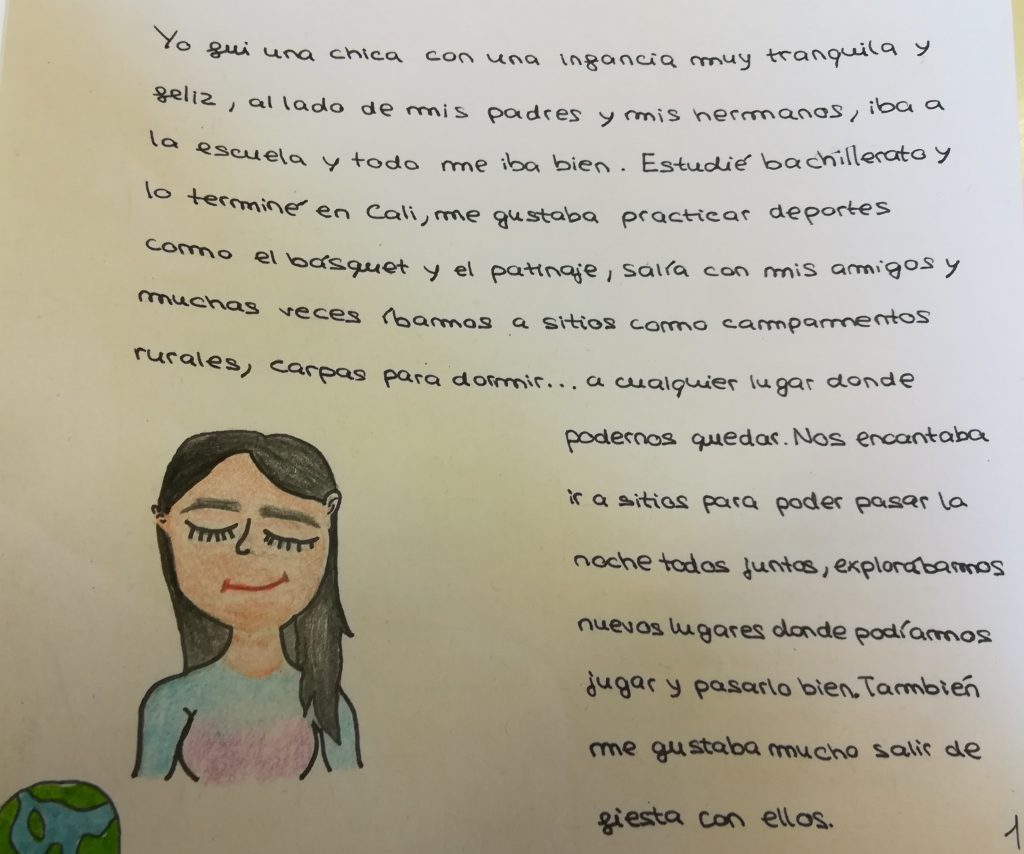 Yo fui una chica con una infancia muy tranquila y
feliz, al lado de mis padres y mis hermanos, iba a
la escuela y todo me iba bien. Estudié bachillerato y
lo terminé en Cali, me gustaba practicar deportes
como el básquet y el patinaje, salía con mis amigos y
muchas veces íbamos a sitios como campamentos
rurales, carpas para dormir... a cualquier lugar donde
podernos quedar. Nos encantaba
ir a sitios para poder pasar la
noche todos juntos, explorábamos
nuevos lugares donde podíamos
jugar y pasarlo bien. También
me gustaba mucho salir de
fiesta con ellos.
1